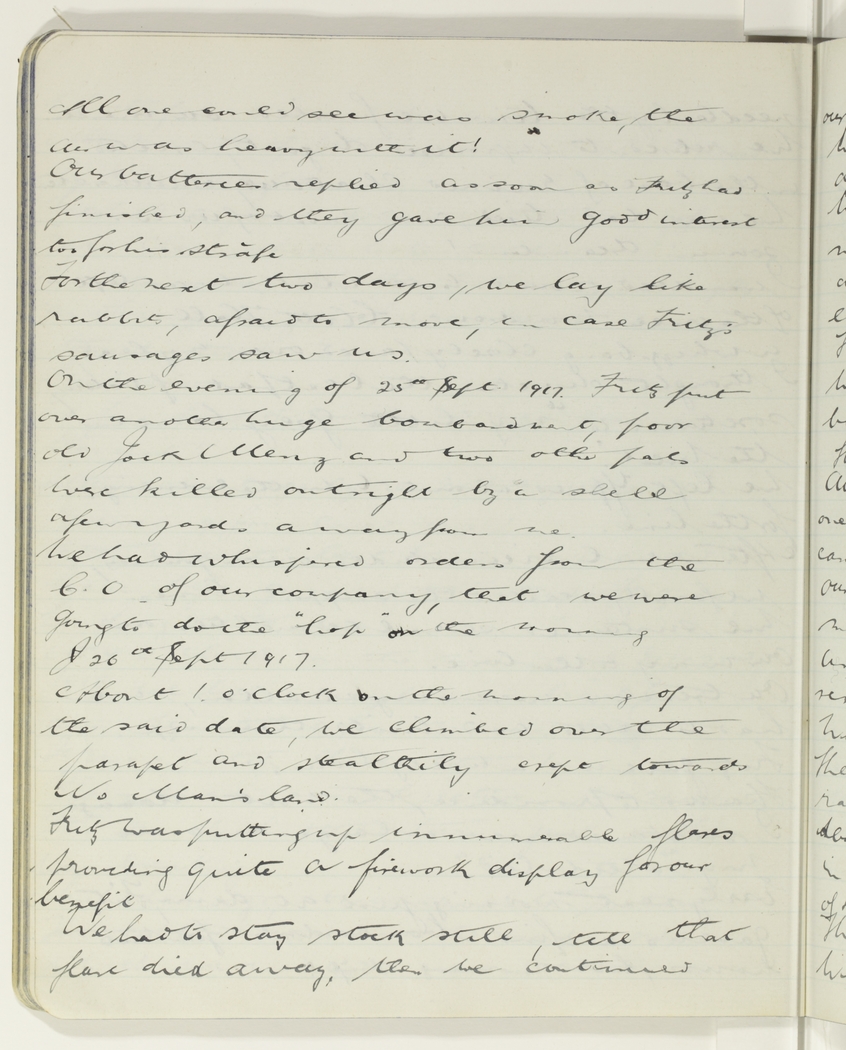 All one could see was smoke, the
air was heavy with it!
Our batteries replied as soon as Fritz had
finished, and they gave him good interest
too for his strafe
For the next two days, we lay like
rabbits, afraid to move, in case Fritz's
sausages saw us.
On the evening of 25th Sept. 1917. Fritz put
over another huge bombardment, poor
old Jack Menz and two other pals
were killed outright by a shell
a few yards away from me.
We had whispered orders from the
C.O. of our company, that we were
going to do the "hop" on the morning
of 26th Sept 1917.
About 1. o'clock on the morning of
the said date, we climbed over the
parapet and stealthily crept towards
No Man's land.
Fritz was putting up innumerable flares
providing quite a firework display for our
benefit
We had to stay stock still, till that
flare died away, then we continued